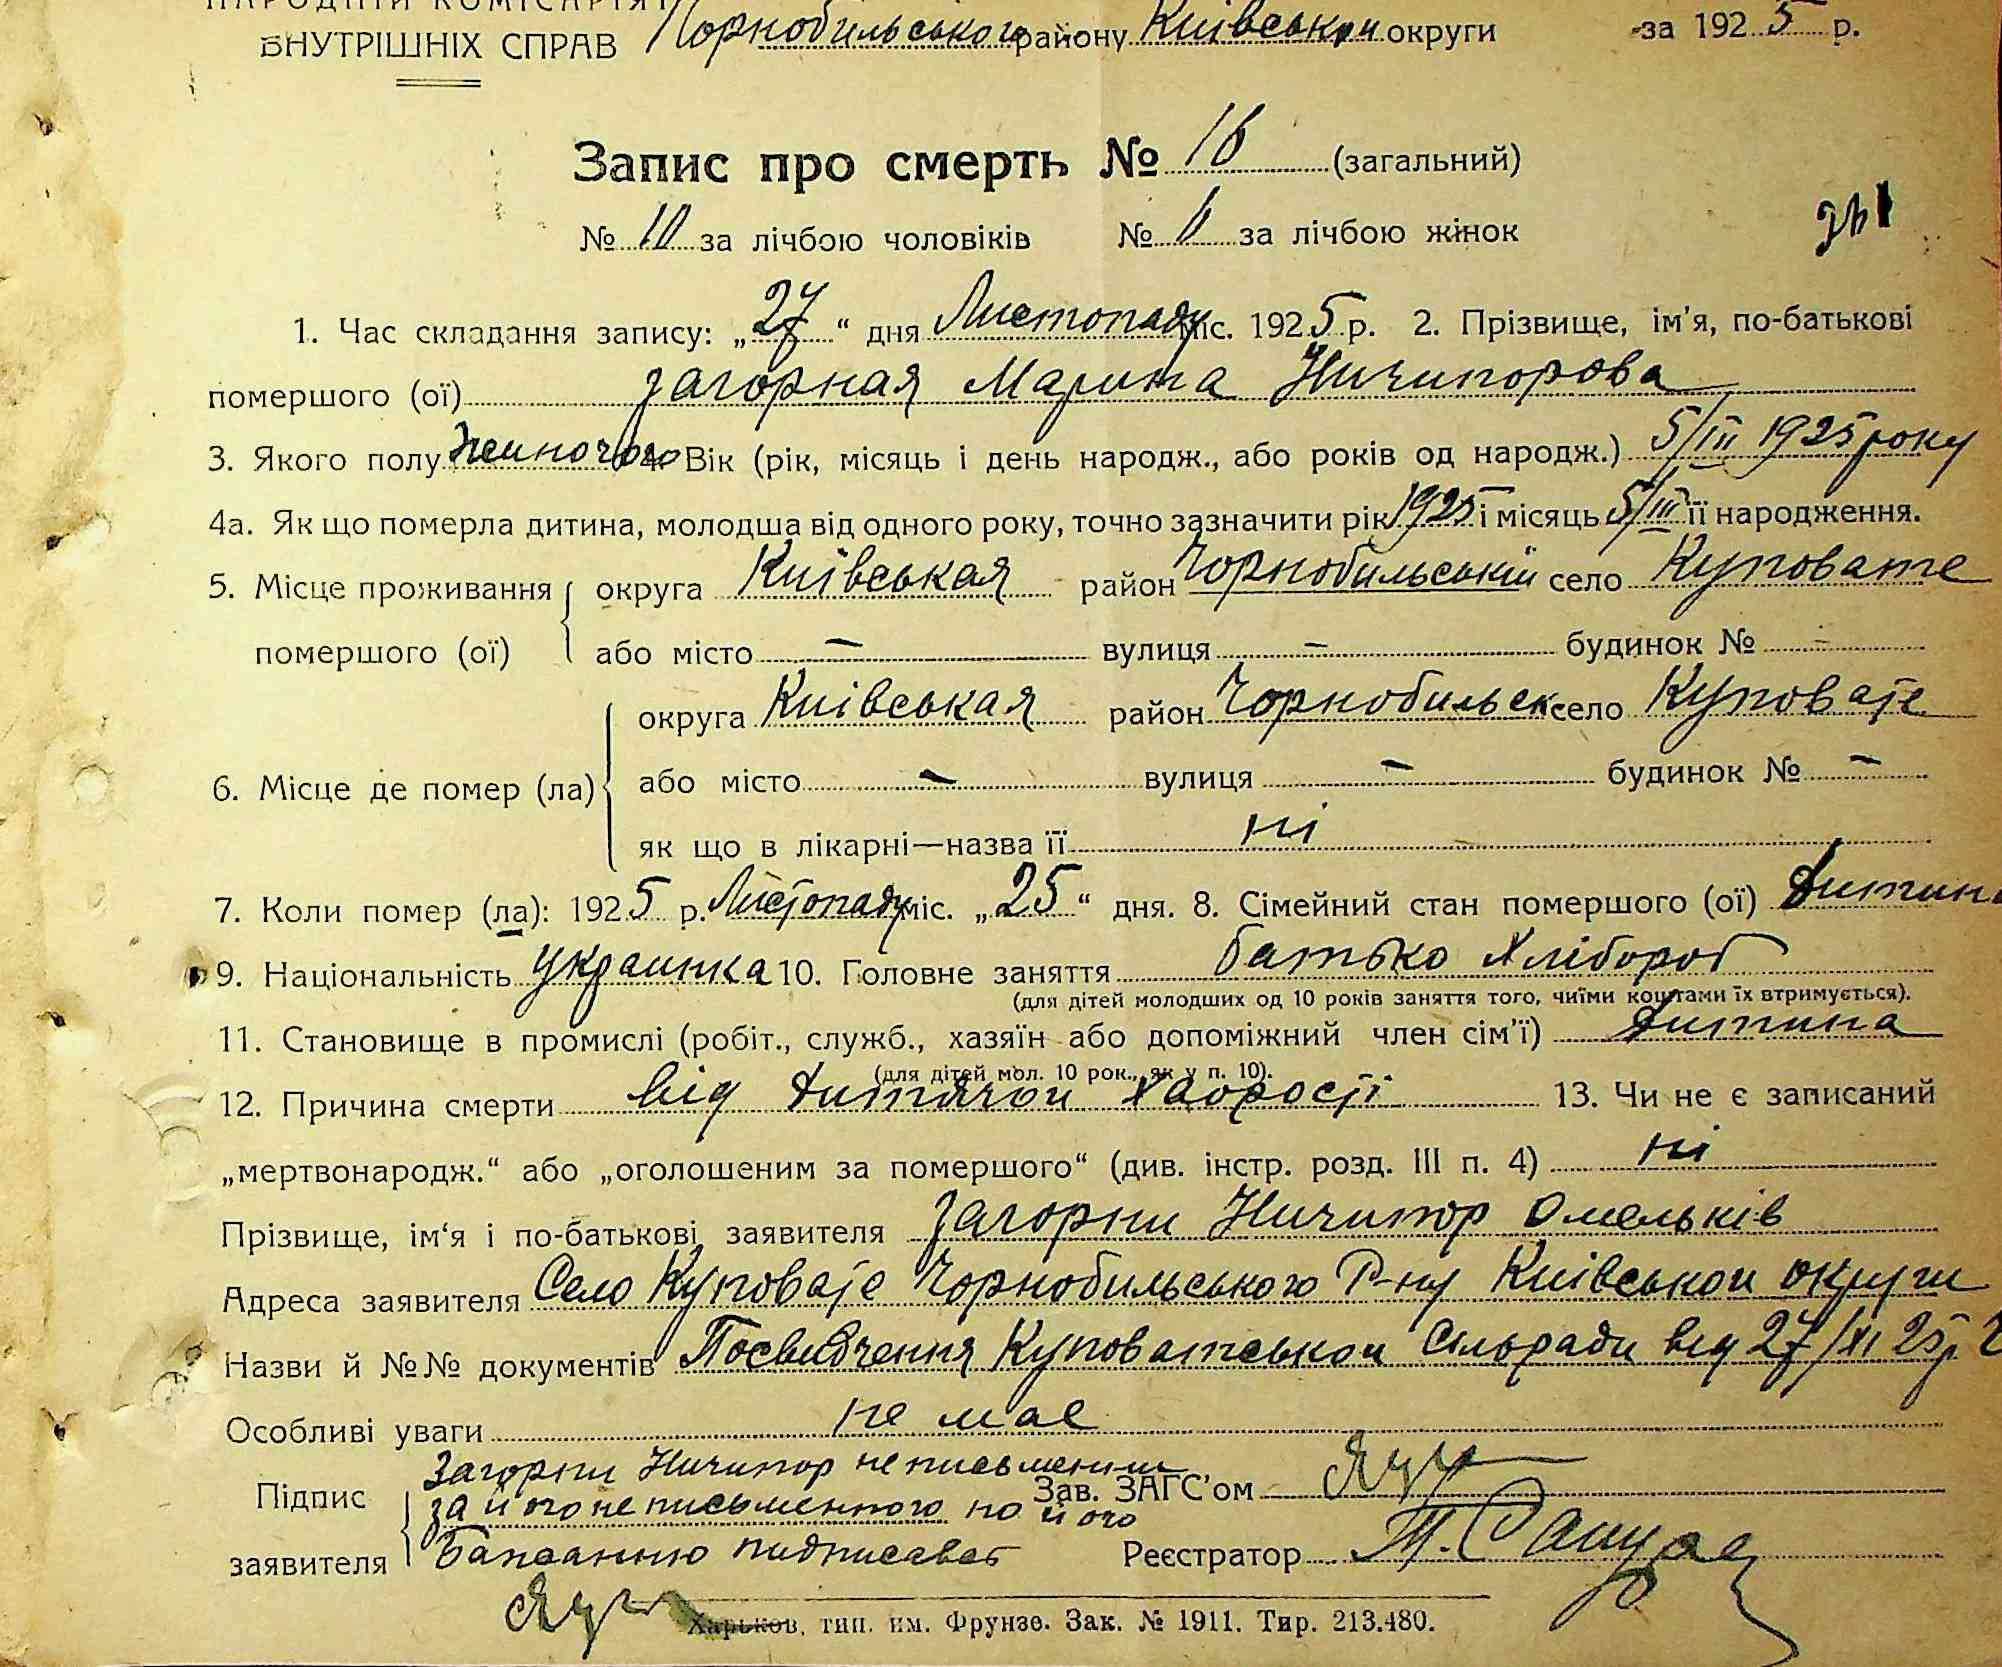 НАРОДНІЙ КОМІСАРІЯТ
ВНУТРІШНІХ СПРАВ Чорнобильського району Київськои округи за 1925 р.
Запис про смерть № 16 (загальний)
№ 10 за лічбою чоловіків № 6 за лічбою жінок
1. Час складання запису: „27“ дня Листопаду міс. 1925 р. 2. Прізвище, ім'я, по-батькові
помершого (ої) Загорная Марина Ничипорова
3. Якого полу жиночого 4. Вік (рік, місяць і день народж., або років од народж.) 5/III 1925 року
4а. Як що померла дитина, молодша від одного року, точно зазначити рік 1925 і місяць 5/III її народження.
5. Місце проживання округа Київськая район Чорнобильський село Куповате
помершого (ої) або місто – вулиця – будинок № –
округа Київськая район Чорнобильск село Куповате
6. Місце де помер (ла) або місто – вулиця – будинок № –
як що в лікарні—назва її ні
7. Коли помер (ла): 1925 р. Листопаду міс. „25“ дня. 8. Сімейний стан помершого (ої) Дитина
9. Національність украинка 10. Головне заняття батько Хлібороб
(для дітей молодших од 10 років заняття того, чиїми коштами їх втримується).
11. Становище в промислі (робіт., служб., хазяїн або допоміжний член сім'ї) Дитина
(для дітей мол. 10 рок., як у п. 10).
12. Причина смерти від Дитячои Хворости 13. Чи не є записаний
„мертвонародж.“ або „оголошеним за помершого“ (див. інстр. розд. III п. 4) ні
Прізвище, ім'я і по-батькові заявителя Загорни Ничипор Омельків
Адреса заявителя Село Куповате Чорнобильського Р-ну Київськои округи
Назви й №№ документів Посвидчення Куповатськои Сільради від 27/XI 25р.
Особливі уваги не має
Загорни Ничипор неписьмении
Підпис за його неписьменного по його Зав. ЗАГС'ом
заявителя Бажанню пидписавсь Реєстратор
Харьков, тип. им. Фрунзе. Зак. № 1911. Тир. 213.480.